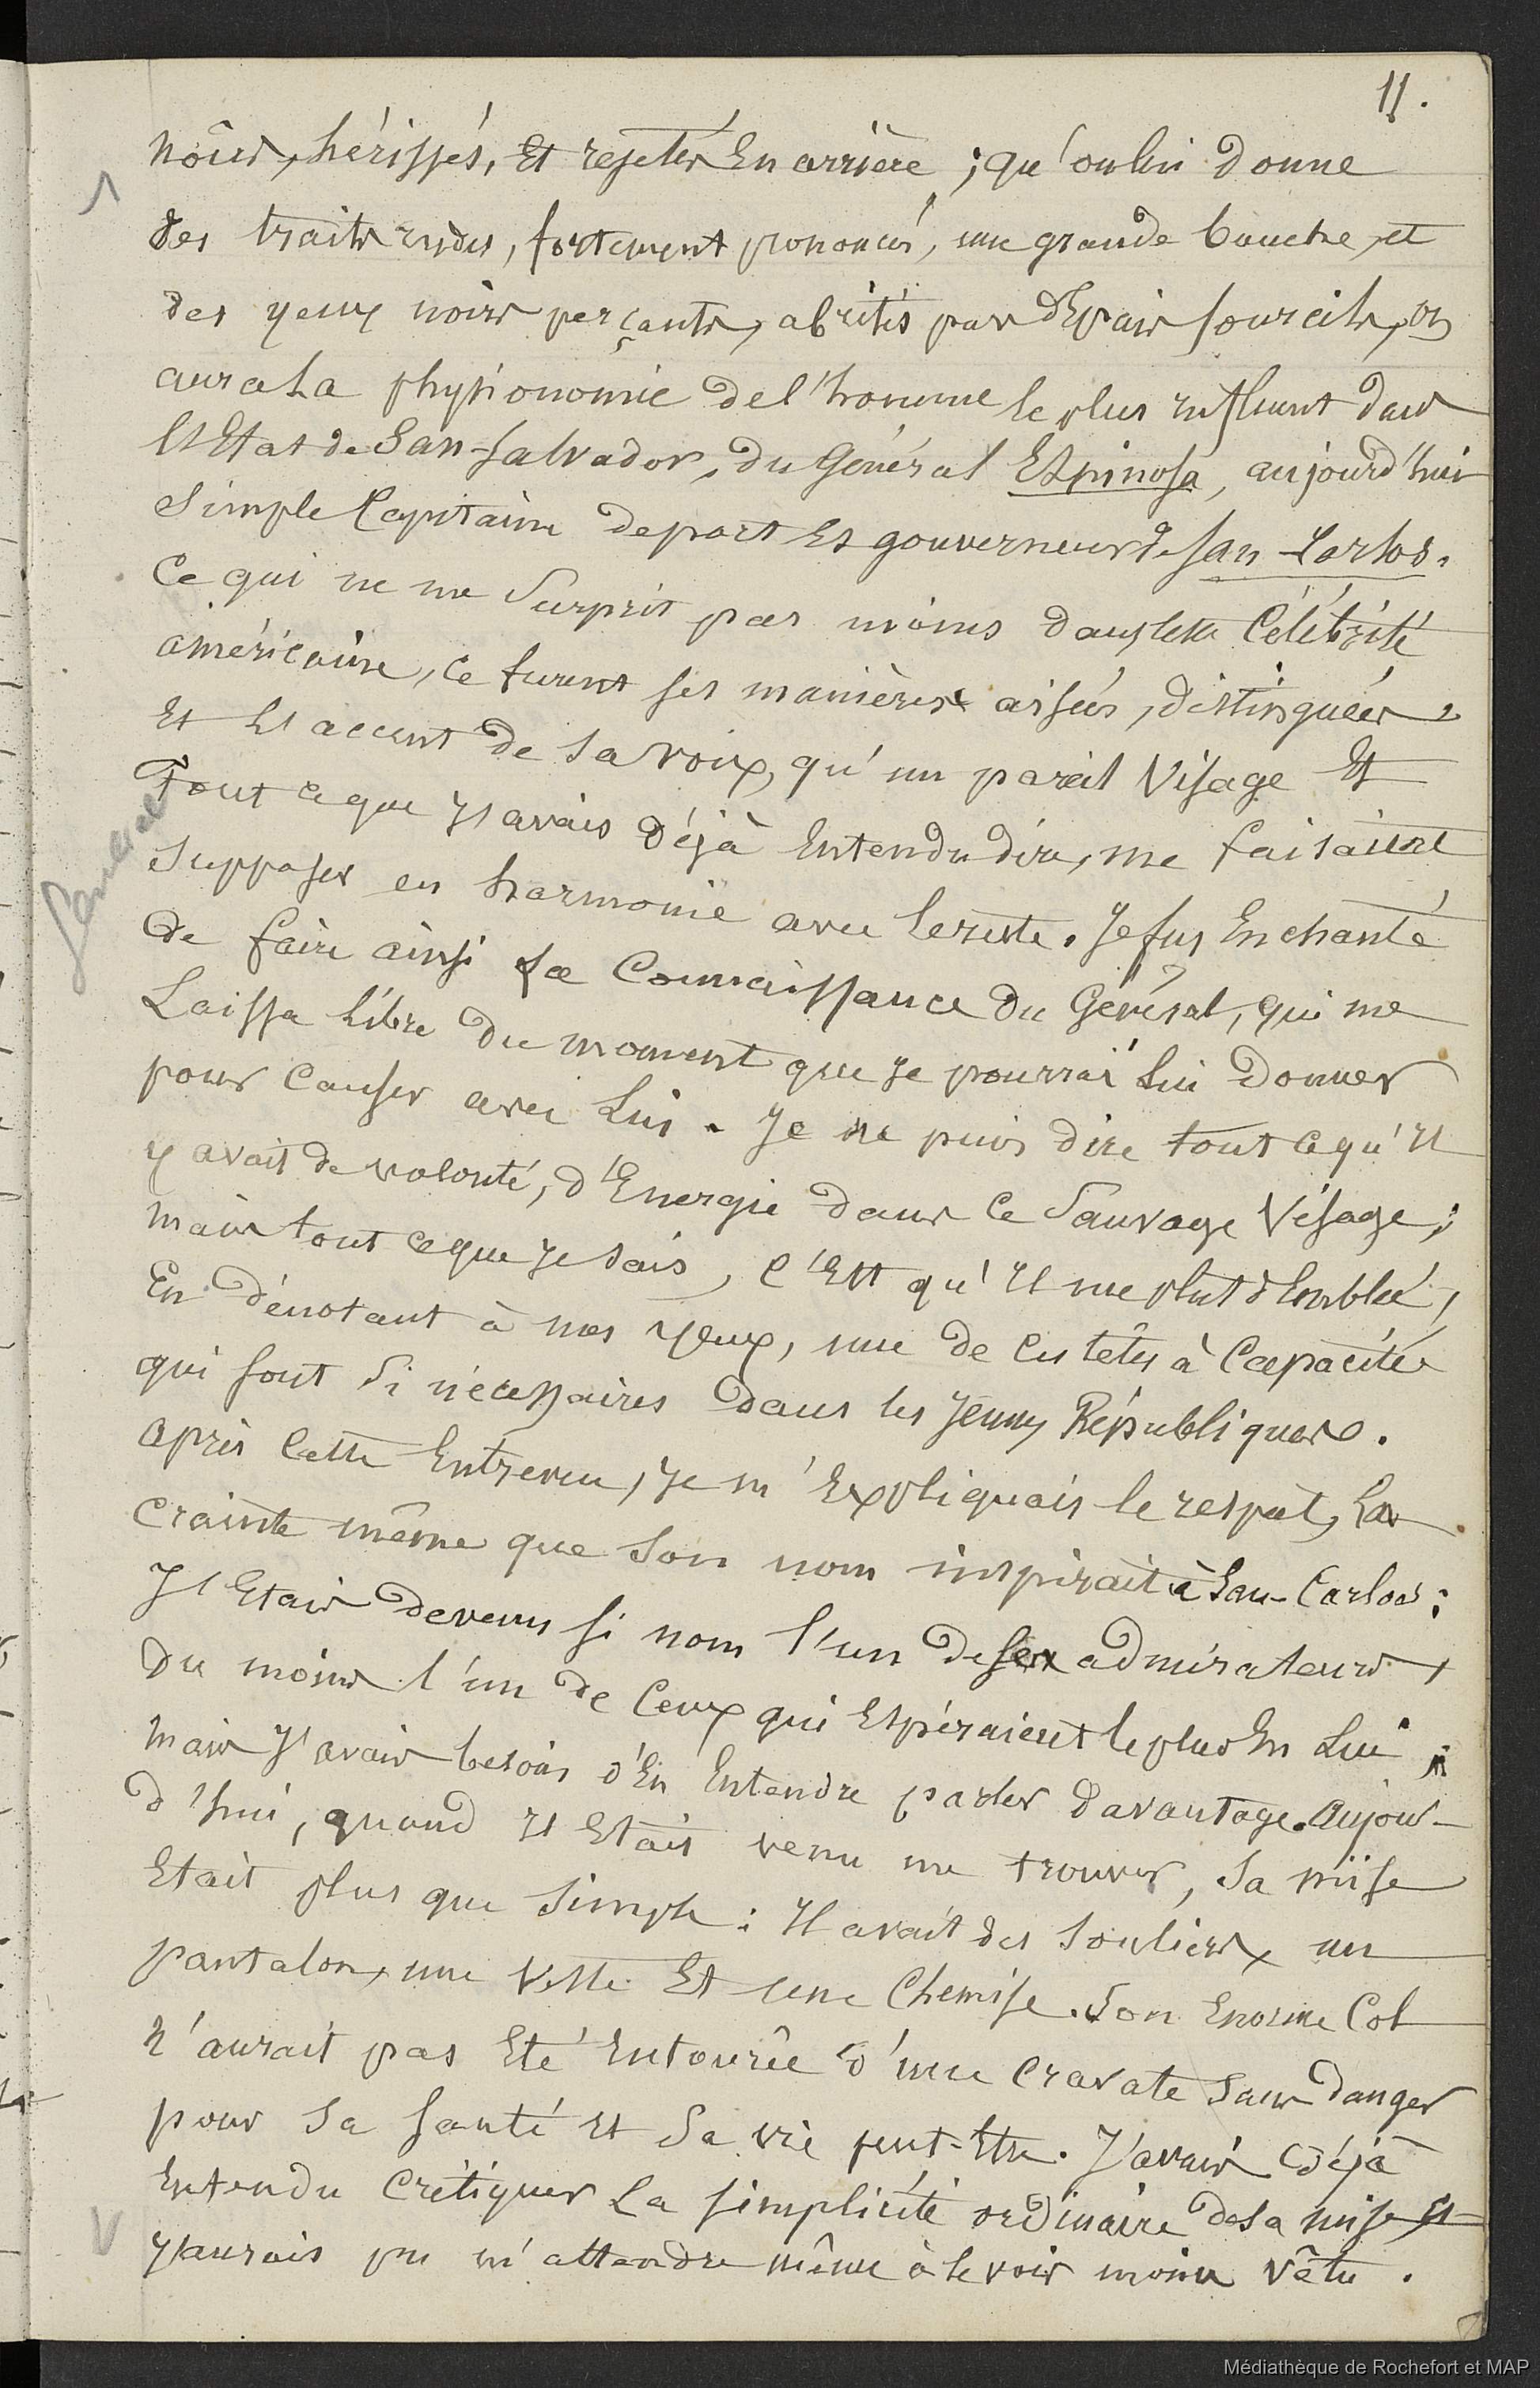 11.
noirs, hérissés, Et rejetés En arrière ; qu'on lui donne
des traits rudes, fortement prononcés, une grande bouche, et
des yeux noirs perçants, abrités par d'Epais sourcils, on
aura La physionomie de l'homme le plus influent dans
l'Etat de San-Salvador, du Général Espinosa, aujourd'hui
simple Capitaine de port Et gouverneur de San-Carlos.
Ce qui ne me Surprit pas moins dans cette Célébrité
américaine, ce furent ses manières aisées, distinguées,
Et L'accent de sa voix, qu'un pareil Visage Et
Tout ce que J'avais déjà Entendu dire, me faisaient
Supposer en harmonie avec le reste. Je fus Enchanté
de faire ainsi La Connaissance du Général, qui me
Laissa libre du moment que je pourrai Lui Donner
pour Causer avec Lui. Je ne puis dire tout ce qu'Il
y avait de volonté, d'Energie dans Ce Sauvage Visage ;
mais tout ce que Je sais, C'Est qu'Il me plut d'Emblée,
En dénotant à mes yeux, une de ces têtes à Capacités
qui sont Si nécessaires dans les Jeunes Républiques.
Après Cette Entrevue, Je m'Expliquais le respect, La
Crainte même que Son nom inspirait à San-Carlos ;
J'Etais devenu si non l'un de ses admirateurs,
du moins l'un de Ceux qui Espéraient le plus En Lui ;
Mais J'avais besoin d'En Entendre parler davantage. Aujour-
d'hui, quand Il Etait venu me trouver, Sa mise
Etait plus que Simple : Il avait des Souliers, un
pantalon, une Veste Et une Chemise. Son Enorme Col
N'aurait pas Eté Entourée d'une Cravate Sans danger
pour Sa Santé Et Sa vie peut-Etre. J'avais déjà
Entendu Critiquer La simplicité ordinaire de sa mise Et
J'aurais pu m'attendre même à le voir moins Vêtu.
General
Médiathèque de Rochefort et MAP